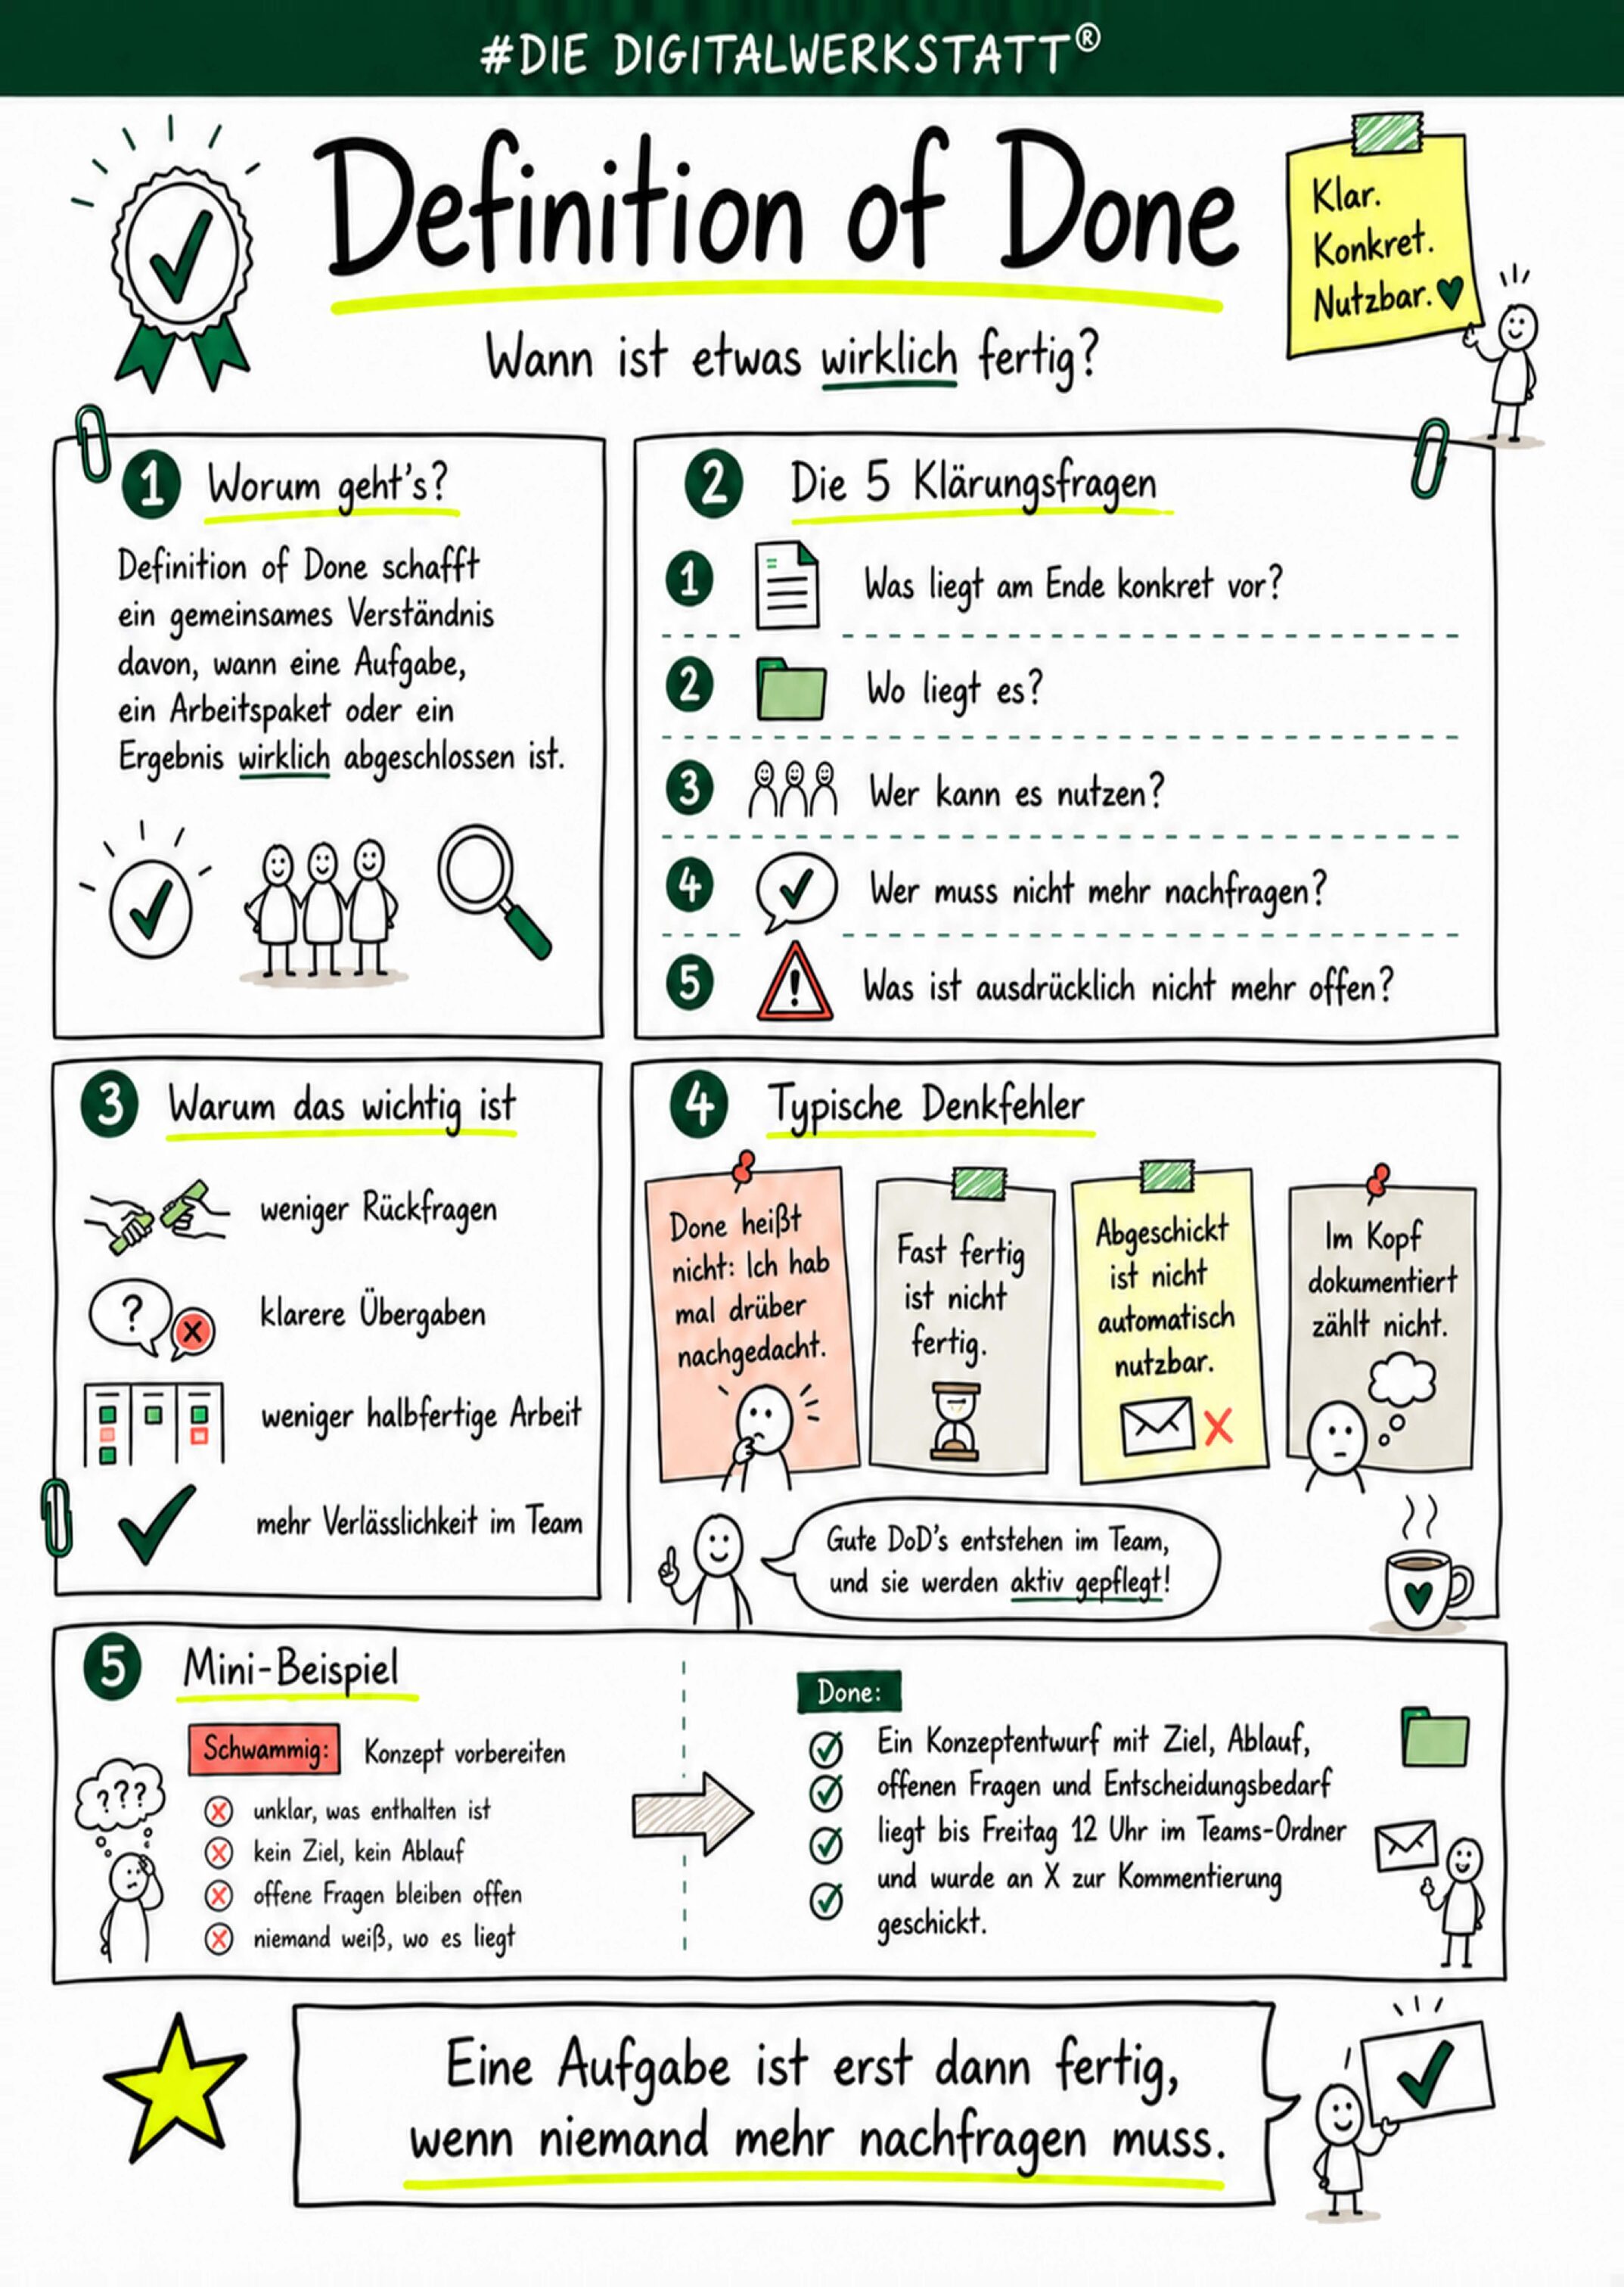 #DIE DIGITALWERKSTATT®
Definition of Done
Wann ist etwas wirklich fertig?
Klar.
Konkret.
Nutzbar.
1 Worum geht's?
Definition of Done schafft
ein gemeinsames Verständnis
davon, wann eine Aufgabe,
ein Arbeitspaket oder ein
Ergebnis wirklich abgeschlossen ist.
2 Die 5 Klärungsfragen
1 Was liegt am Ende konkret vor?
2 Wo liegt es?
3 Wer kann es nutzen?
4 Wer muss nicht mehr nachfragen?
5 Was ist ausdrücklich nicht mehr offen?
3 Warum das wichtig ist
weniger Rückfragen
?
klarere Übergaben
weniger halbfertige Arbeit
mehr Verlässlichkeit im Team
4 Typische Denkfehler
Done heißt
nicht: Ich hab
mal drüber
nachgedacht.
Fast fertig
ist nicht
fertig.
Abgeschickt
ist nicht
automatisch
nutzbar.
Im Kopf
dokumentiert
zählt nicht.
Gute DoD's entstehen im Team,
und sie werden aktiv gepflegt!
5 Mini-Beispiel
Schwammig: Konzept vorbereiten
???
unklar, was enthalten ist
kein Ziel, kein Ablauf
offene Fragen bleiben offen
niemand weiß, wo es liegt
Done:
Ein Konzeptentwurf mit Ziel, Ablauf,
offenen Fragen und Entscheidungsbedarf
liegt bis Freitag 12 Uhr im Teams-Ordner
und wurde an X zur Kommentierung
geschickt.
Eine Aufgabe ist erst dann fertig,
wenn niemand mehr nachfragen muss.